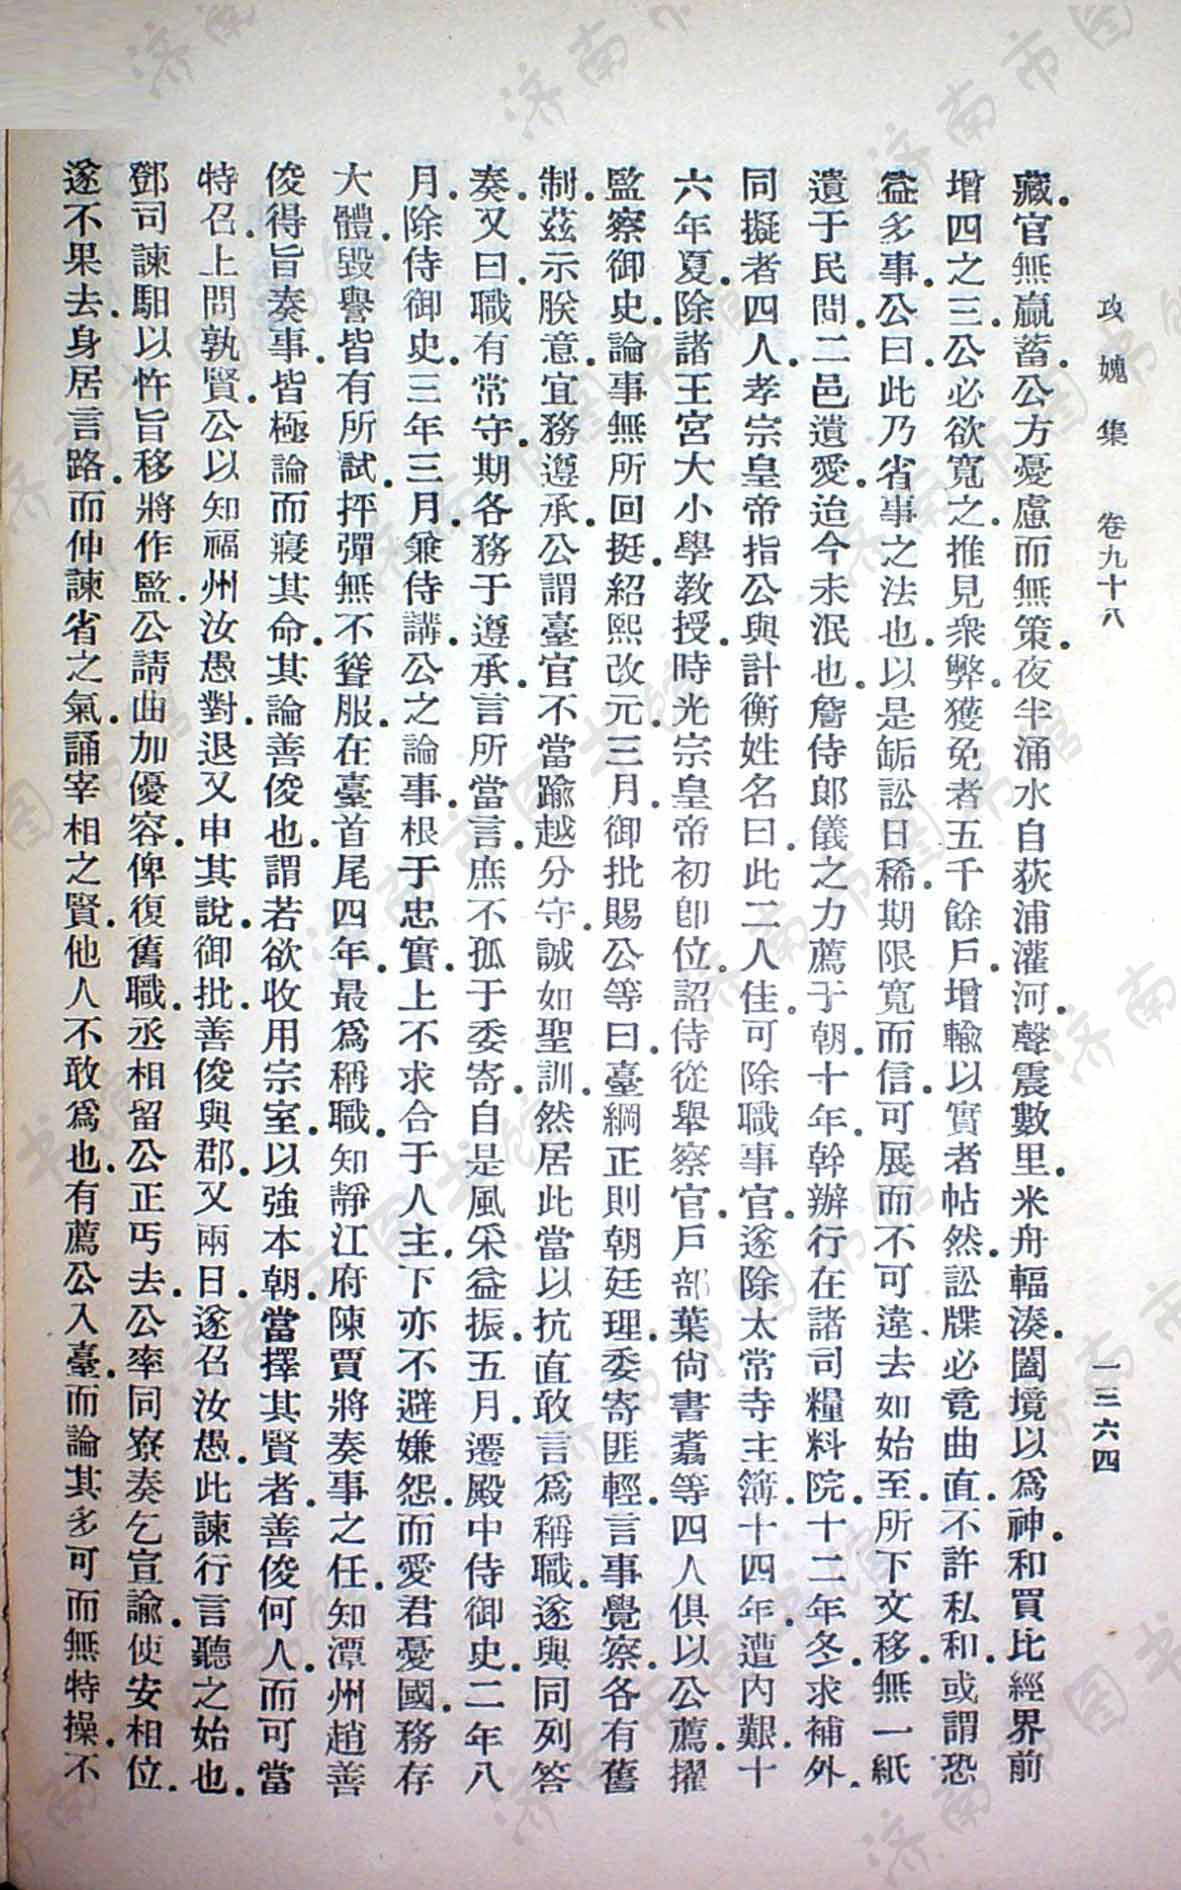 攻媿集　卷九十八　一三六四
藏。官無羸蓄。公方憂慮而無策。夜半涌水自荻浦灌河。聲震數里。米舟輻湊。闔境以爲神。和買比經界前
增四之三。公必欲寬之。推見衆弊。獲免者五千餘戶。增輸以實者帖然。訟牒必竟曲直。不許私和。或謂恐
益多事。公曰。此乃省事之法也。以是缿訟日稀。期限寬而信。可展而不可違。去如始至。所下文移。無一紙
遺于民間。二邑遺愛。迨今未泯也。詹侍郎儀之力薦于朝。十年。幹辦行在諸司糧料院。十二年冬。求補外。
同擬者四人。孝宗皇帝指公與計衡姓名曰。此二人佳。可除職事官。遂除太常寺主簿。十四年。遭內艱。十
六年夏。除諸王宮大小學教授。時光宗皇帝初卽位。詔侍從舉察官。戶部葉尙書翥等四人俱以公薦。擢
監察御史。論事無所回挺。紹熙改元三月。御批賜公等曰。臺綱正則朝廷理。委寄匪輕。言事覺察。各有舊
制。茲示朕意。宜務遵承。公謂臺官不當踰越分守。誠如聖訓。然居此當以抗直敢言爲稱職。遂與同列答
奏。又曰。職有常守。期各務于遵承。言所當言。庶不孤于委寄。自是風采益振。五月。遷殿中侍御史。二年八
月。除侍御史。三年三月。兼侍講。公之論事。根于忠實。上不求合于人主。下亦不避嫌怨。而愛君憂國。務存
大體。毀譽皆有所試。抨彈無不聳服。在臺首尾四年。最爲稱職。知靜江府陳賈將奏事之任。知潭州趙善
俊得旨奏事。皆極論而寢其命。其論善俊也。謂若欲收用宗室。以強本朝。當擇其賢者。善俊何人。而可當
特召。上問孰賢。公以知福州汝愚對。退又申其說。御批。善俊與郡。又兩日。遂召汝愚。此諫行言聽之始也。
鄧司諫馹以忤旨移將作監。公請曲加優容。俾復舊職。丞相留公正丐去。公率同寮奏乞宣諭。使安相位。
遂不果去。身居言路。而伸諫省之氣。誦宰相之賢。他人不敢爲也。有薦公入臺。而論其多可而無特操。不